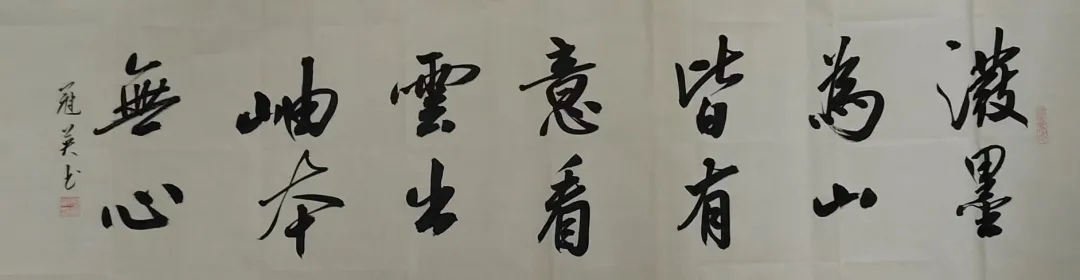 潑墨
為山
皆有
意看
雲出
岫本
無心
冠英书